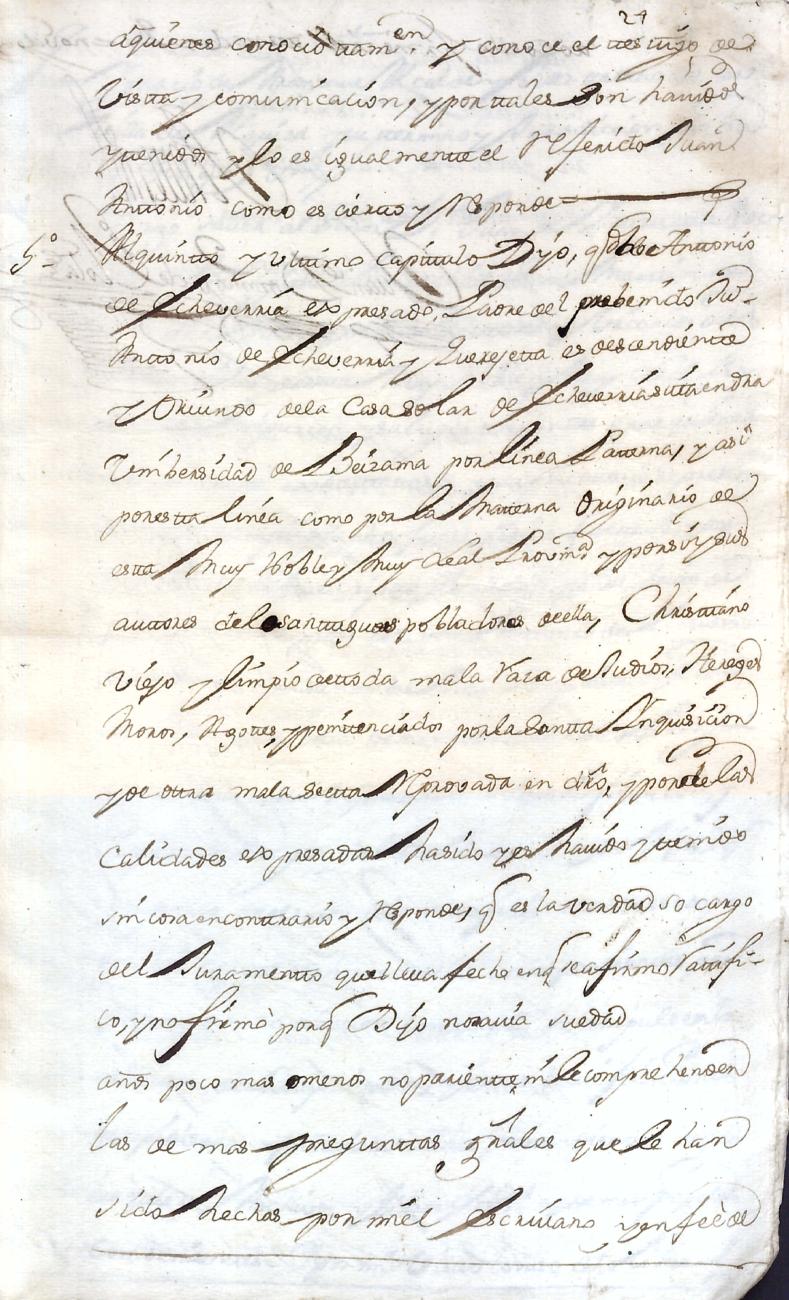 24
aquienes conocio ttamen. y conoce el ttesttigo de
Vistta y comunicacion, y por ttales son havidos
y ttenidos y lo es igualmentte el Referido Juan
Anttonio como es ciertto y Responde
5.o Al quintto y Ulttimo Capittulo Dijo, q Anttonio
de Echeverria expresado, Padre del prebenido Ju.n
Anttonio de Echeverria y Querejetta es descendientte
y Oriundo de la Casa solar de Echeverria sitta en dha
Unibersidad de Beizama por linea Patterna, y asi
por estta linea como por la Matterna Originario de
estta Muy Noble y Muy Leal Provin.a y por si y sus
auttores de los anttiguos pobladores de ella, Christtiano
Viejo y limpio de ttoda mala Raza de Judios, Hereges
Moros, Agottes, y penittenciados por la Santta Inquisicion
y de ottra mala Sectta Reprovada en dro, y por de las
Calidades expresadas ha sido y es havido y ttenido
sin cosa en conttrario y Responde, q es la verdad so cargo
del Juramentto que lleva fecho en q se afirmo Rattifi-
co, y no firmo porq Dijo no savia su edad
años poco mas o menos no parientte, ni le comprehenden
las de mas pregunttas gñales que le han
sido hechas por mi el Escrivano y en fee de